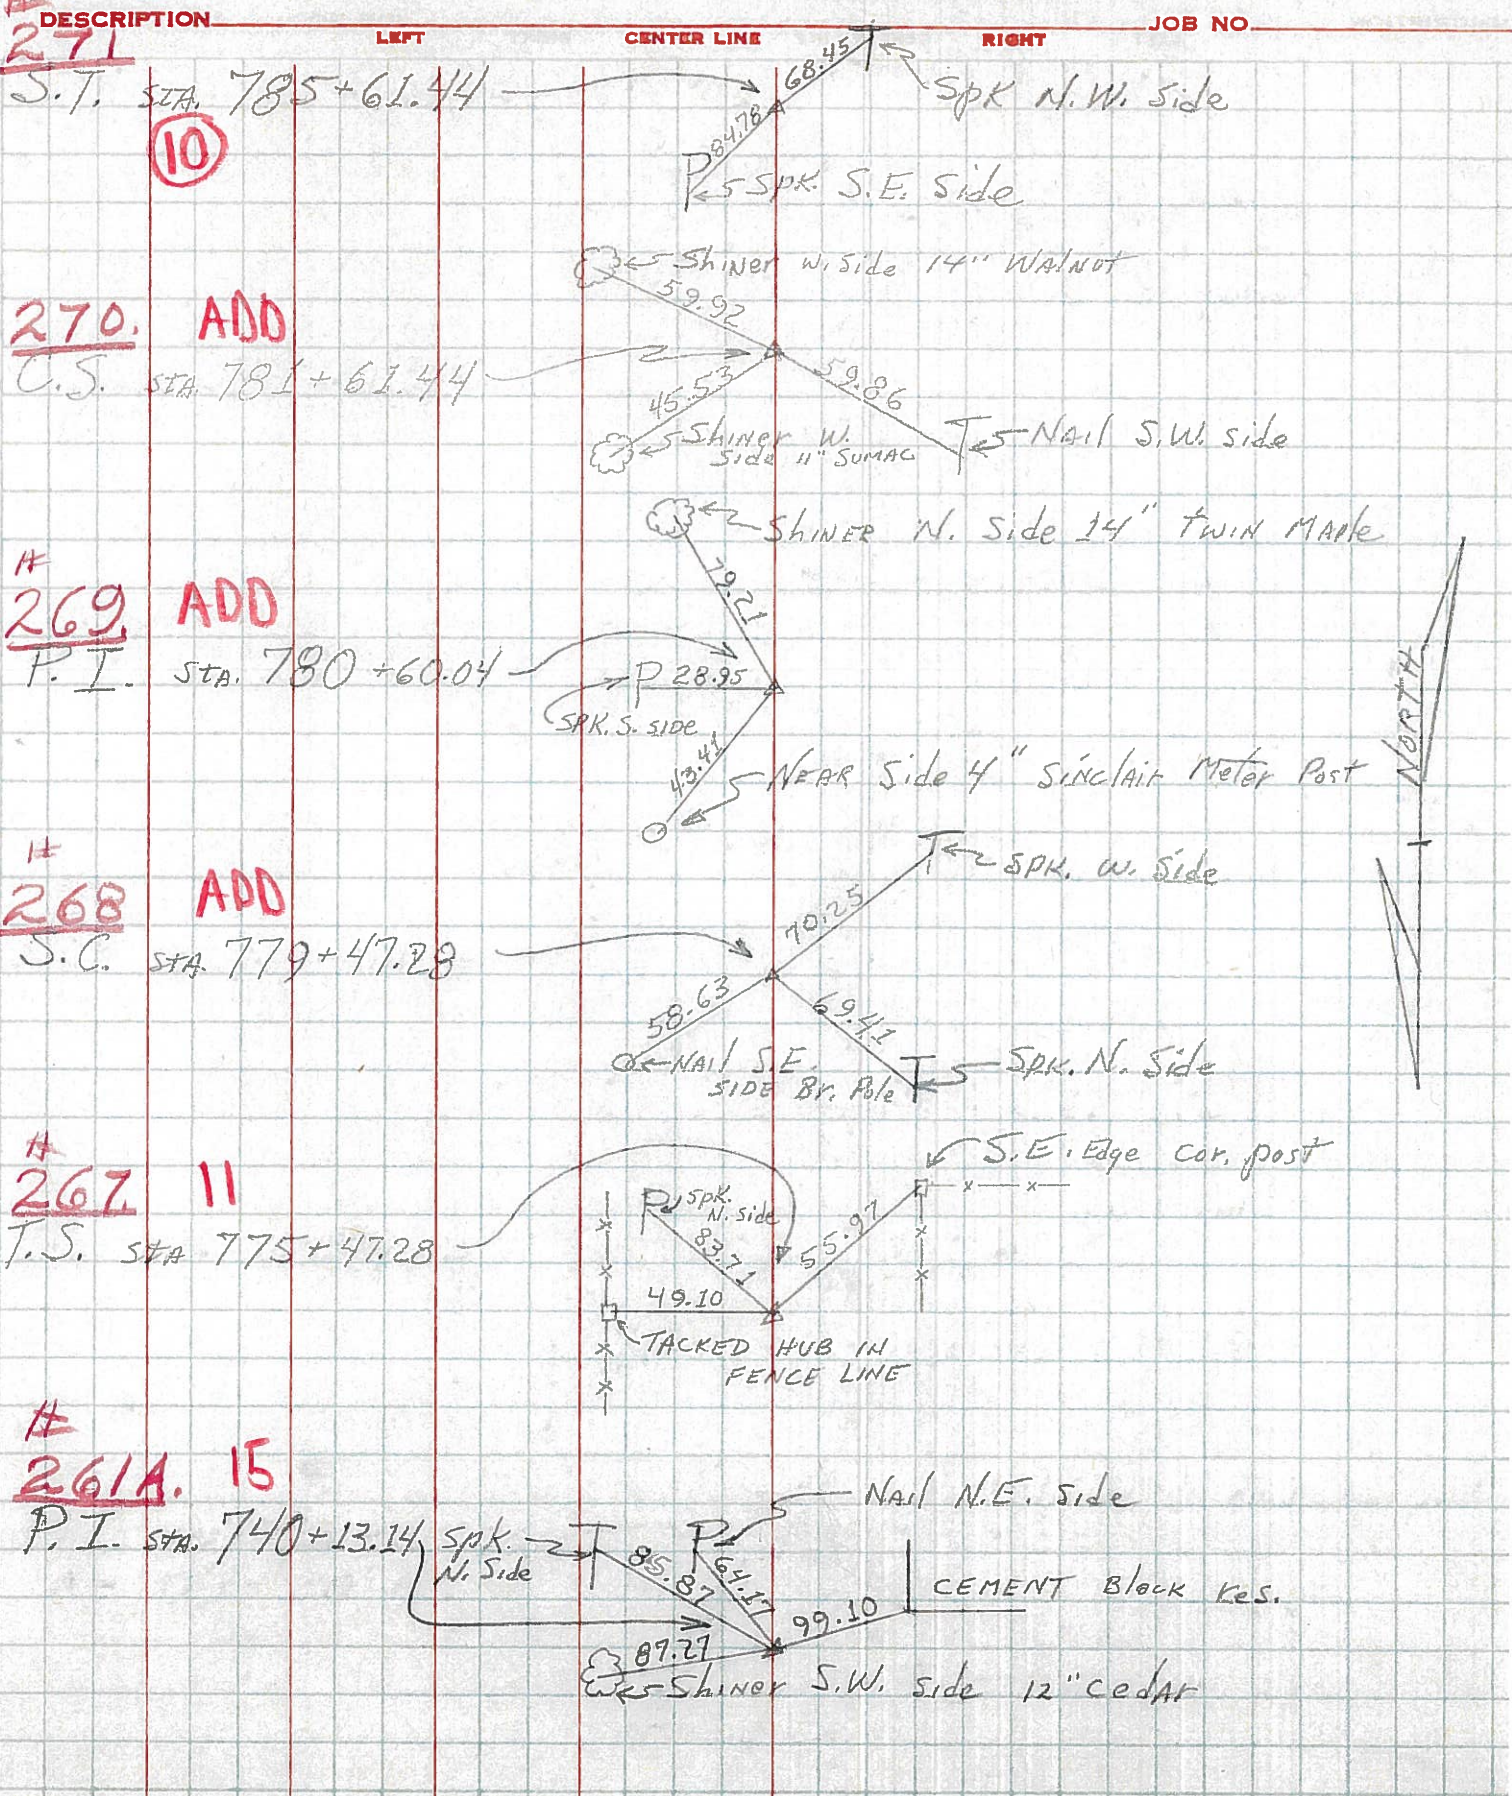 DESCRIPTION JOB NO.
LEFT CENTER LINE RIGHT
271
S.T. STA. 785+61.44
10
68.45
Spk N.W. Side
84.78
Spk. S.E. Side
Shiner W. Side 14" Walnut
59.92
270. ADD
C.S. STA. 781+61.44
45.53
59.86
Shiner W.
Side 11" Sumac
Nail S.W. side
Shiner N. Side 14" Twin Maple
79.21
#
269. ADD
P.I. Sta. 780+60.04
P 28.95
SPK. S. SIDE
43.41
Near Side 4" Sinclair Meter Post
NORTH
#
268 ADD
S.C. Sta. 779+47.28
70.25
SPK. W. Side
58.63
69.41
Nail S.E.
SIDE Br. Pole
Spk. N. Side
#
267. 11
T.S. Sta 775+47.28
S.E. Edge Cor. post
P Spk.
N. Side
83.71
55.97
49.10
TACKED HUB IN
FENCE LINE
#
261A. 15
P.I. Sta. 740+13.14
Spk.
N. Side
Nail N.E. Side
85.87
64.17
99.10
CEMENT Block Res.
87.27
Shiner S.W. Side 12" Cedar